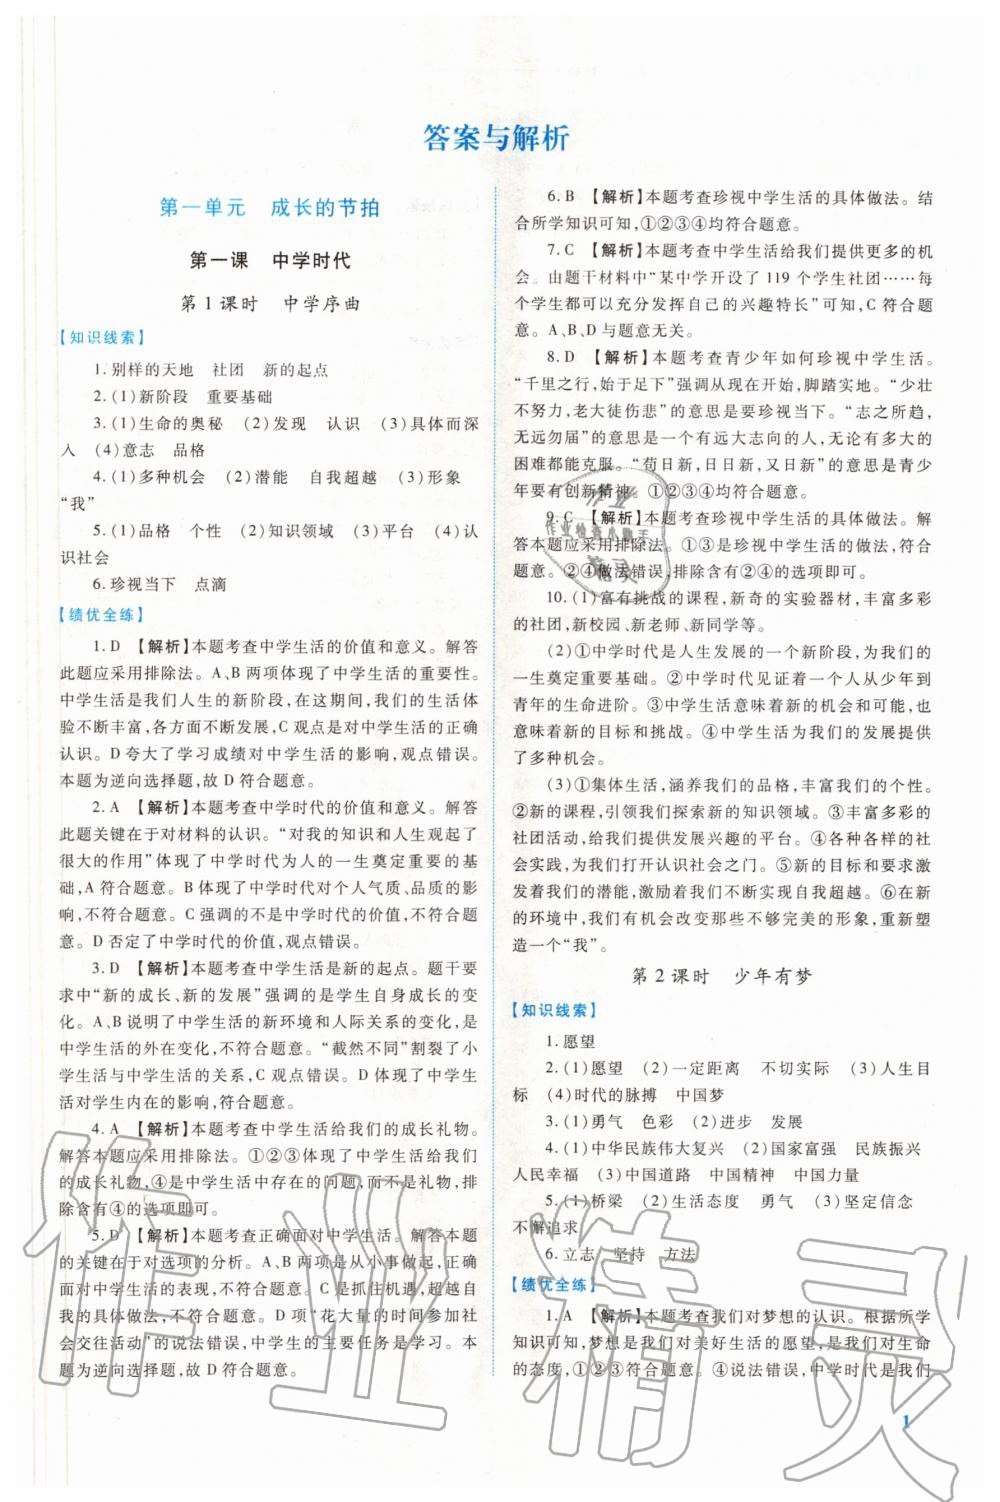 答案与解析
第一单元 成长的节拍
第一课 中学时代
第1课时 中学序曲
【知识线索】
1.别样的天地 社团 新的起点
2.(1)新阶段 重要基础
3.(1)生命的奥秘 (2)发现 认识 (3)具体而深
入 (4)意志 品格
4.(1)多种机会 (2)潜能 自我超越 (3)形象
“我”
5.(1)品格 个性 (2)知识领域 (3)平台 (4)认
识社会
6.珍视当下 点滴
【绩优全练】
1.D 【解析】本题考查中学生活的价值和意义。解答
此题应采用排除法。A、B两项体现了中学生活的重要性。
中学生活是我们人生的新阶段,在这期间,我们的生活体
验不断丰富,各方面不断发展,C观点是对中学生活的正确
认识。D夸大了学习成绩对中学生活的影响,观点错误。
本题为逆向选择题,故D符合题意。
2.A 【解析】本题考查中学时代的价值和意义。解答
此题关键在于对材料的认识。“对我的知识和人生观起了
很大的作用”体现了中学时代为人的一生奠定重要的基
础,A符合题意。B体现了中学时代对个人气质、品质的影
响,不符合题意。C强调的不是中学时代的价值,不符合题
意。D否定了中学时代的价值,观点错误。
3.D 【解析】本题考查中学生活是新的起点。题干要
求中“新的成长、新的发展”强调的是学生自身成长的变
化。A、B说明了中学生活的新环境和人际关系的变化,是
中学生活的外在变化,不符合题意。“截然不同”割裂了小
学生活与中学生活的关系,C观点错误。D体现了中学生
活对学生内在的影响,符合题意。
4.A 【解析】本题考查中学生活给我们的成长礼物。
解答本题应采用排除法。①②③体现了中学生活给我们
的成长礼物,④是中学生活中存在的问题,而不是礼物,故
排除含有④的选项即可。
5.D 【解析】本题考查正确面对中学生活。解答本题
的关键在于对选项的分析。A、B两项是从小事做起,正确
面对中学生活的表现,不符合题意。C是抓住机遇,超越自
我的具体做法,不符合题意。D项“花大量的时间参加社
会交往活动”的说法错误,中学生的主要任务是学习。本
题为逆向选择题,故D符合题意。
6.B 【解析】本题考查珍视中学生活的具体做法。结
合所学知识可知,①②③④均符合题意。
7.C 【解析】本题考查中学生活给我们提供更多的机
会。由题干材料中“某中学开设了119个学生社团……每
个学生都可以充分发挥自己的兴趣特长”可知,C符合题
意。A、B、D与题意无关。
8.D 【解析】本题考查青少年如何珍视中学生活。
“千里之行,始于足下”强调从现在开始,脚踏实地。“少壮
不努力,老大徒伤悲”的意思是要珍视当下。“志之所趋,
无远勿届”的意思是一个有远大志向的人,无论有多大的
困难都能克服。“苟日新,日日新,又日新”的意思是青少
年要有创新精神。①②③④均符合题意。
9.C 【解析】本题考查珍视中学生活的具体做法。解
答本题应采用排除法。①③是珍视中学生活的做法,符合
题意。②④做法错误,排除含有②④的选项即可。
10.(1)富有挑战的课程,新奇的实验器材,丰富多彩
的社团,新校园、新老师、新同学等。
(2)①中学时代是人生发展的一个新阶段,为我们的
一生奠定重要基础。②中学时代见证着一个人从少年到
青年的生命进阶。③中学生活意味着新的机会和可能,也
意味着新的目标和挑战。④中学生活为我们的发展提供
了多种机会。
(3)①集体生活,涵养我们的品格,丰富我们的个性。
②新的课程,引领我们探索新的知识领域。③丰富多彩的
社团活动,给我们提供发展兴趣的平台。④各种各样的社
会实践,为我们打开认识社会之门。⑤新的目标和要求激
发着我们的潜能,激励着我们不断实现自我超越。⑥在新
的环境中,我们有机会改变那些不够完美的形象,重新塑
造一个“我”。
第2课时 少年有梦
【知识线索】
1.愿望
2.(1)愿望 (2)一定距离 不切实际 (3)人生目
标 (4)时代的脉搏 中国梦
3.(1)勇气 色彩 (2)进步 发展
4.(1)中华民族伟大复兴 (2)国家富强 民族振兴
人民幸福 (3)中国道路 中国精神 中国力量
5.(1)桥梁 (2)生活态度 勇气 (3)坚定信念
不懈追求
6.立志 坚持 方法
【绩优全练】
1.A 【解析】本题考查我们对梦想的认识。根据所学
知识可知,梦想是我们对美好生活的愿望,是我们对生命
的态度,①②③符合题意。④说法错误,中学时代是我们
1
作业精灵
作业
作业检查小霸王
精灵